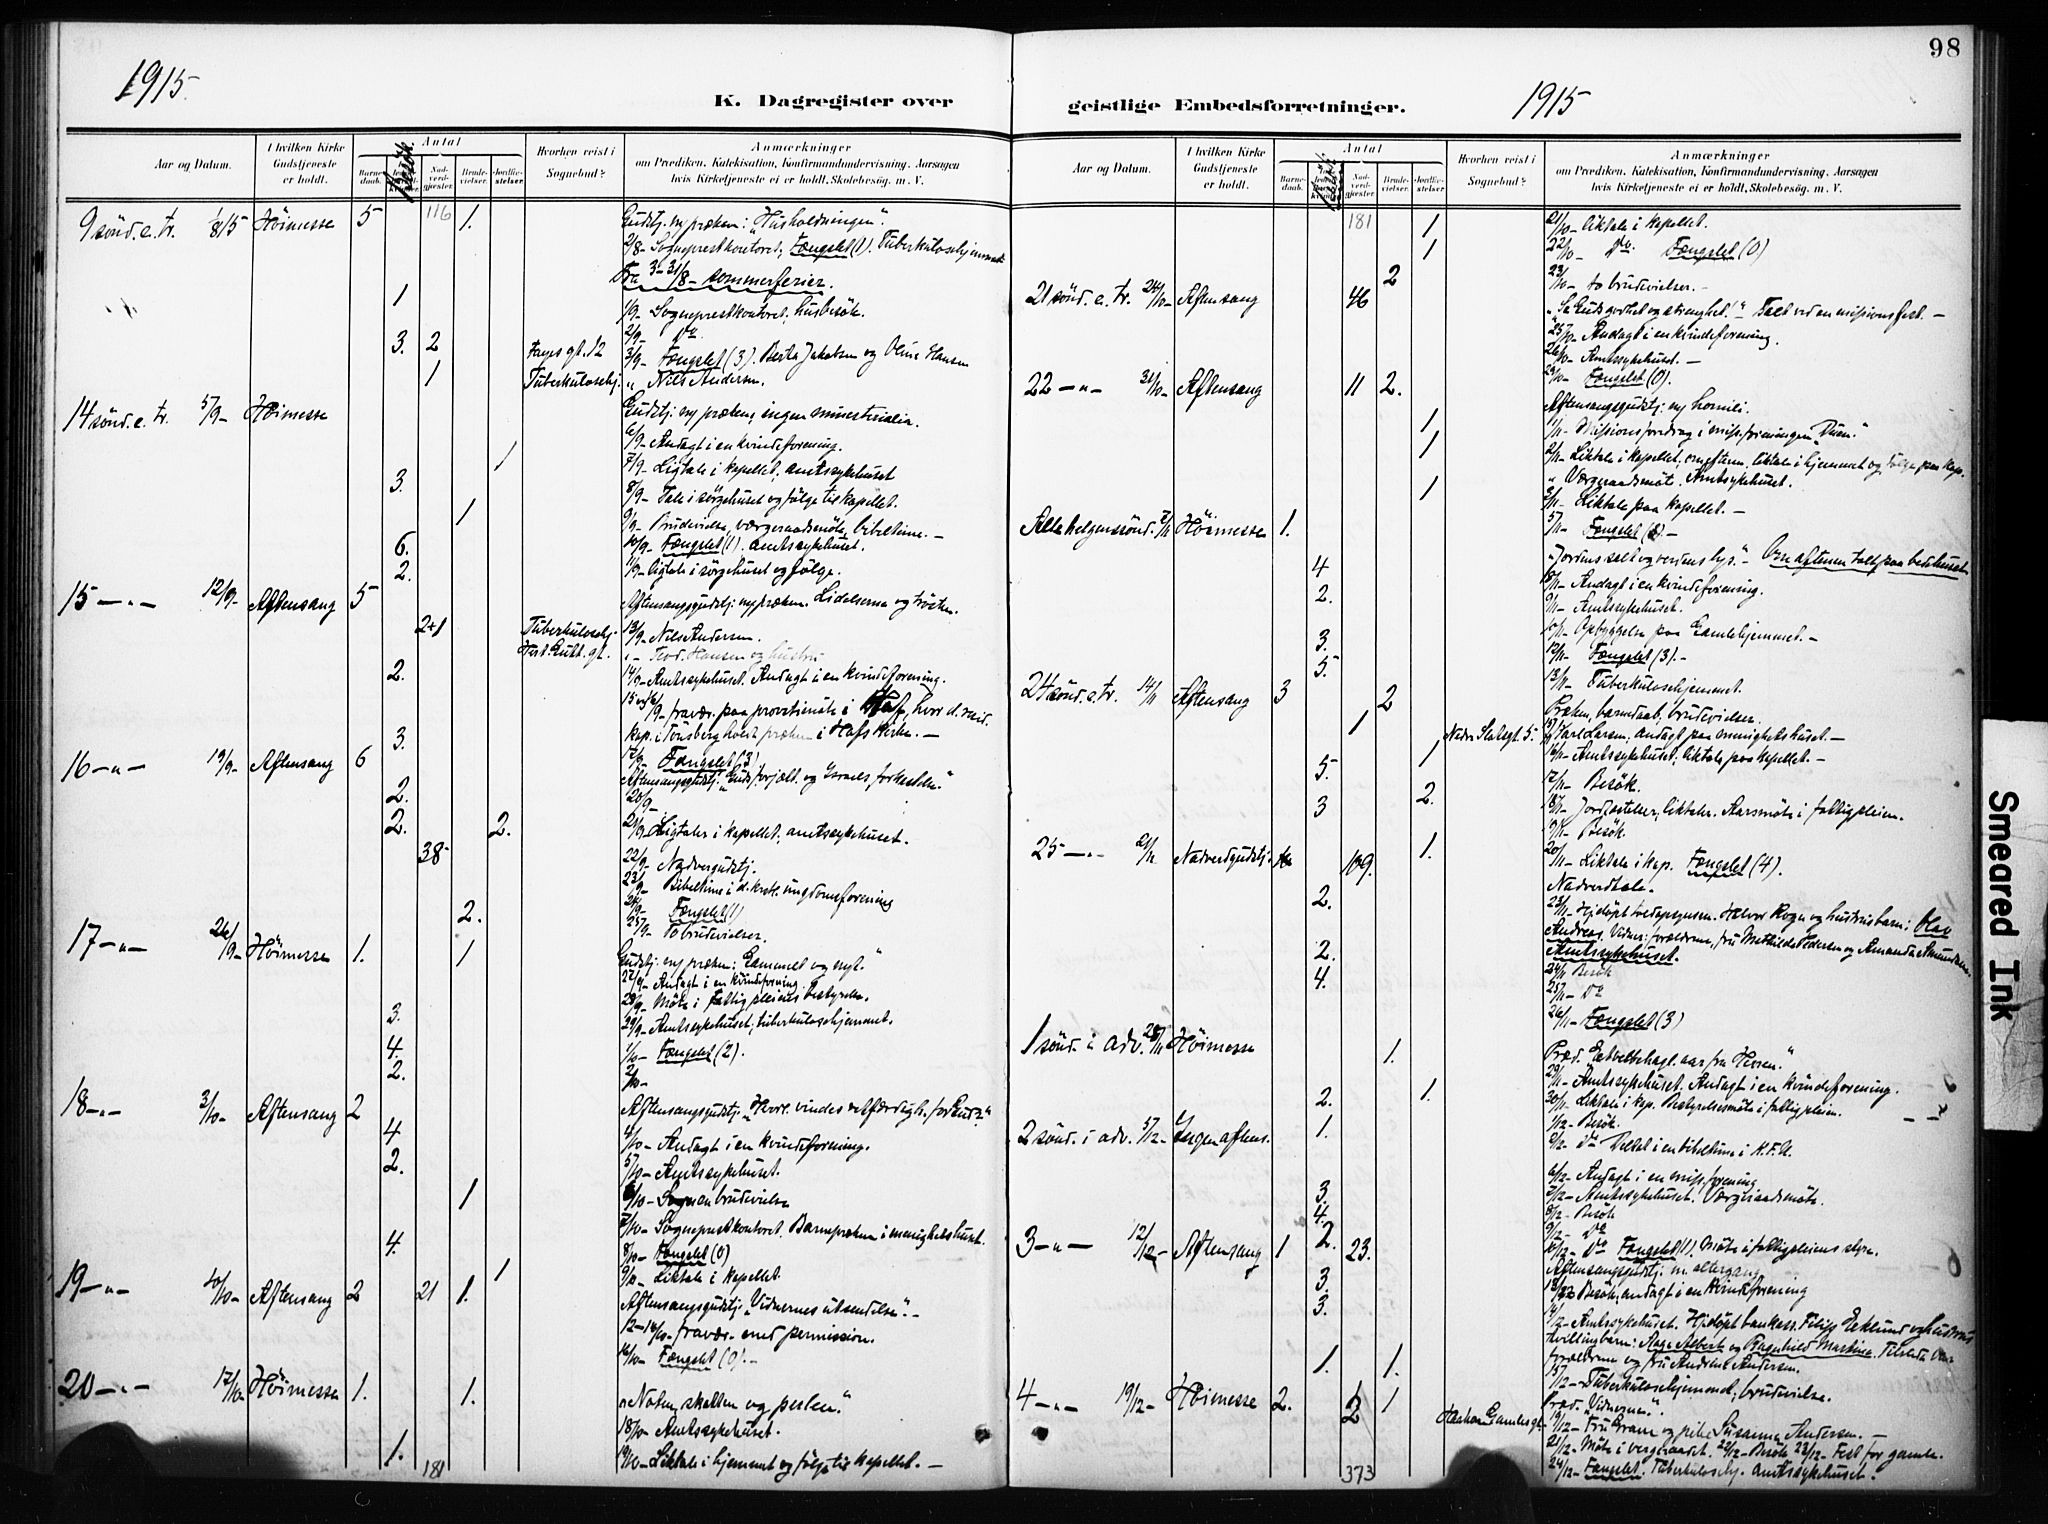 98
1915.
1915
K. Dagregister over
geistlige Embedsforretninger.
Aar og Datum.
I hvilken Kirke Gudstjeneste er holdt.
Antal
Barnedaab.
Nadverdgjester.
Brudevielser.
Jordfæstelser.
Hvorhen reist i Sognebud?
Anmærkninger
om Prædiken, Katekisation, Konfirmandundervisning, Aarsagen
hvis Kirketjeneste ei er holdt, Skolebesøg. m. V.
116
9 sönd. e. tr. 1/8 15 Höimesse 5 1. Gudstj. ny præken: "Husholdningen".
2/8- Sogneprestkontoret, Fængslet (1). Tuberkulosehjemmet
Fra 3-31/8- sommerferier.
1 1/9- Sogneprestkontoret, husbesök.
2/9- Do
3. 2 Farges gt. 12 3/9- Fængslet (3). Berta Jakobsen og Oline Hansen
1 Tuberkulosehj. " Nils Andersen.
14 sönd. e. tr. 5/9- Höimesse Gudstj. ny præken, ingen ministerialia.
6/9- Andagt i en kvindeforening.
1 7/9- Ligtale i kapellet, amtssykehuset
3. 8/9- Tale i sörgehuset og fölge til kapellet.
1 9/9- Brudevielse, værgeraadsmöte, bibeltime. -
6. 10/9- Fængslet (1). amtssykehuset.
2. 11/9- Ligtale i sörgehuset og fölge.
15 -"- 12/9- Aftensang 5 Aftensangsgudstj. ny præken. Lidelserne og trösten.
2+1 Tuberkulosehj. 13/9- Nils Andersen.
"- Teod. Hansen og hustru
2. 14/9- Amtssykehuset. Andagt i en kvindeforening.
15 og 16/9- fravær. paa provstimöte i Hof, hvor d. resid.
kap. i Tönsberg holdt præken i Hofs kirke. -
3. 17/9- Fængslet (3)
16 -"- 19/9- Aftensang 6 Aftensangsgudstj. "Guds forjætt. og Israels forkastelse."
2. 20/9-
2. 2. 21/9- Ligtaler i kapellet, amtssykehuset.
38 22/9- Nadvergudstj.
23/9- Bibeltime i d. kristl. ungdomsforening
24/9- Fængslet (1)
2. 25/9- To brudevielser.
17 -"- 26/9- Höimesse 1. 1 Gudstj. ny præken: "Gammelt og nyt."
27/9- Andagt i en kvindeforening.
28/9- Möte i fattigpleiens bestyrelse.
3. 29/9- Amtssykehuset, tuberkulosehjemmet.
4. 1/10- Fængslet (2).
2. 2/10-
18 -"- 3/10- Aftensang 2 Aftensangsgudstj. "Hvor. vindes retfærdigh. for Gud?"
4 4/10- Andagt i en kvindeforening.
2. 5/10- Amtssykehuset.
1 6/10- en brudevielse
7/10- Sogneprestkontoret. Barnepræken i menighetshuset.
4. 8/10- Fængslet (0)
1 9/10- Liktale i kapellet.
19 -"- 10/10- Aftensang 2 21 1. Aftensangsgudstj. "Vidnernes utsendelse". -
12-14/10- fravær. med permission.
16/10- Fængslet (0). -
20 -"- 17/10- Höimesse 1. 1. "Noten, skatten og perlen."
18/10- Amtssykehuset.
1. 19/10- Liktale i hjemmet og fölge til kapellet. -
181
Aar og Datum.
I hvilken Kirke Gudstjeneste er holdt.
Antal
Barnedaab.
Nadverdgjester.
Brudevielser.
Jordfæstelser.
Hvorhen reist i Sognebud?
Anmærkninger
om Prædiken, Katekisation, Konfirmandundervisning, Aarsagen
hvis Kirketjeneste ei er holdt, Skolebesøg. m. V.
181
1 21/10- Liktale i kapellet.
1 22/10- Do Fængslet (0)
2 23/10- to brudevielser. -
21 sönd. e. tr. 24/10- Aftensang 46 "Se Guds godhet og strenghet!" Talt ved en missionsfest. -
25/10- Andagt i en kvindeforening.
26/10- Amtssykehuset. -
29/10- Fængslet (0).
22 -"- 31/10- Aftensang 11 2. Aftensangsgudstj. ny homili.
1 1/11- Missionsforedrag i miss. foreningen "Duen."
1 2/11- Liktale i kapellet, om efterm. liktale i hjemmet og fölge paa kap.
" Værgeraadsmöt. Amtssykehuset.
1 3/11- Liktale paa kapellet. -
5/11- Fængslet
Allehelgenssönd. 7/11 Höimesse 1. "Jordens salt og verdens lys." - Om aftenen talt paa bedehuset
4 8/11- Andagt i en kvindeforening.
2. 9/11- Amtssykehuset.
10/11- Opbyggelse paa Gamlehjemmet. -
3. 12/11- Fængslet (3). -
5. 13/11- Tuberkulosehjemmet.
24 sönd. e. tr. 14/11 Aftensang 3 2 Præken, barnedaab, brudevielser.
1 Nedre Slotsgt. 5. 15/11 Karl Larsen, andagt paa menighetshuset. -
1 16/11- Amtssykehuset, liktale paa kapellet. -
5. 17/11- Besök.
3 2. 18/11- Jordfæstelser, liktaler. Aarsmöte i fattigpleien.
19/11- Besök
1. 20/11- Liktale i kap. Fængslet (4).
25 -"- 21/11 Nadverdgudstj. 109. Nadverdtale.
2. 23/11- Hjdöpt
Halvor Rogn og hustrus barn: Olav
Andreas. Vidner: forældrene, fru Mathilde Pedersen og Amanda Amundsen
2. Amtssykehuset.
4. 24/11 Besök
25/11- Do
26/11- Fængslet (3)
1 sönd. i adv. 28/11 Höimesse 1. Præd. "Et velbehagl. aar fra Herren."
29/11- Amtssykehuset. Andagt i en kvindeforening.
2. 1. 30/11- Liktale i kap. Bestyrelsesmöte i fattigpleien.
1/12- Besök.
1. 2/12- Do Deltat i en bibeltime i K.F.U.
2 sönd. i adv. 5/12- Ingen aftens.
6/12- Andagt i en miss. forening
3. 7/12- Amtssykehuset. Værgeraadsmöte.
4. 8/12- Besök
2. 9/12- Do
10/12- Do Fængslet (1). Möte i fattigpleiens styre.
3 -"- 12/12- Aftensang 1 23. Aftensangsgudstj. m. altergang
3. 13/12- Besök, andagt i en kvindeforening
3. 14/12- Amtssykehuset. Hjdöpt bankass. Filip Eklund og hustrus
tvillingbarn: Aage Albert og Ragnhild Martine. Tilstede var
forældrene og fru Andrine Andersen.
1. 1. 15/12- Tuberkulosehjemmet, brudevielse.
4 -"- 19/12- Höimesse 2. 1 Præd. "Vidnerne".
2 Haakon Gamles gt. 19/12- Fru Gram og pike Susanna Andersen. -
21/12- Möte i vergeraadet. 22/12- Besök 23/12- Fest for gamle.
24/12- Fængslet. Tuberkulosehj. Amtssykehuset.
373
Smeared Ink